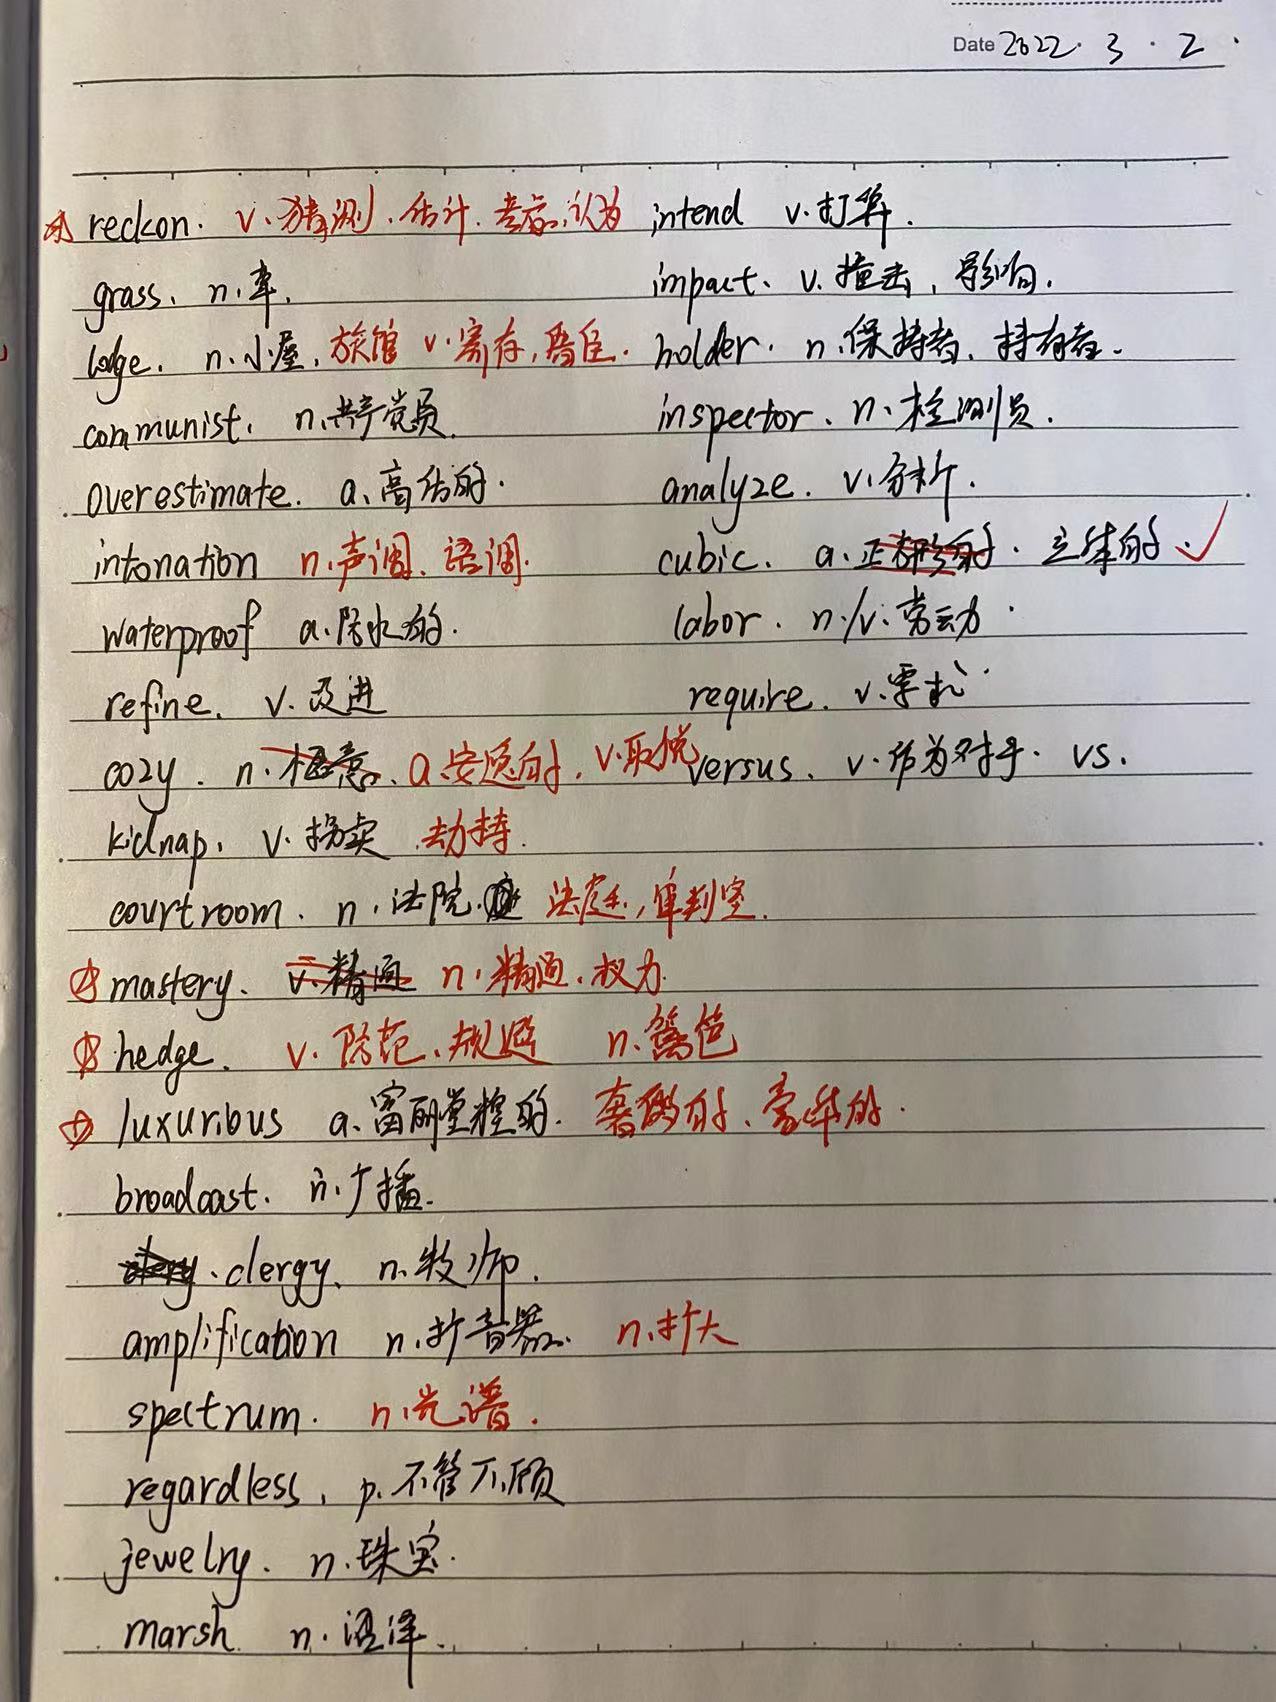 Date 2022. 3. 2.
reckon. v.猜测.估计.考虑,认为
grass. n.草.
lodge. n.小屋,旅馆 v.寄存,居住.
communist. n.共产党员.
overestimate. a.高估的.
intonation n.声调.语调.
waterproof a.防水的.
refine. v.改进
cozy. n. a.安逸的. v.取悦
kidnap. v.拐卖 劫持.
courtroom. n.法院. 法庭,审判室.
mastery. v.精通 n.精通.权力.
hedge. v.防范.规避 n.篱笆
luxuribus a.富丽堂煌的. 奢侈的.豪华的.
broadcast. n.广播.
clergy. n.牧师.
amplification n.扩音器. n.扩大
spectrum. n.光谱.
regardless. p.不管不顾
jewelry. n.珠宝.
marsh. n.沼泽.
intend v.打算.
impact. v.撞击,影响.
holder. n.保持者.持有者.
inspector. n.检测员.
analyze. v.分析.
cubic. a.正方形的. 立体的.
labor. n./v.劳动.
require. v.需求.
versus. v.作为对手. vs.